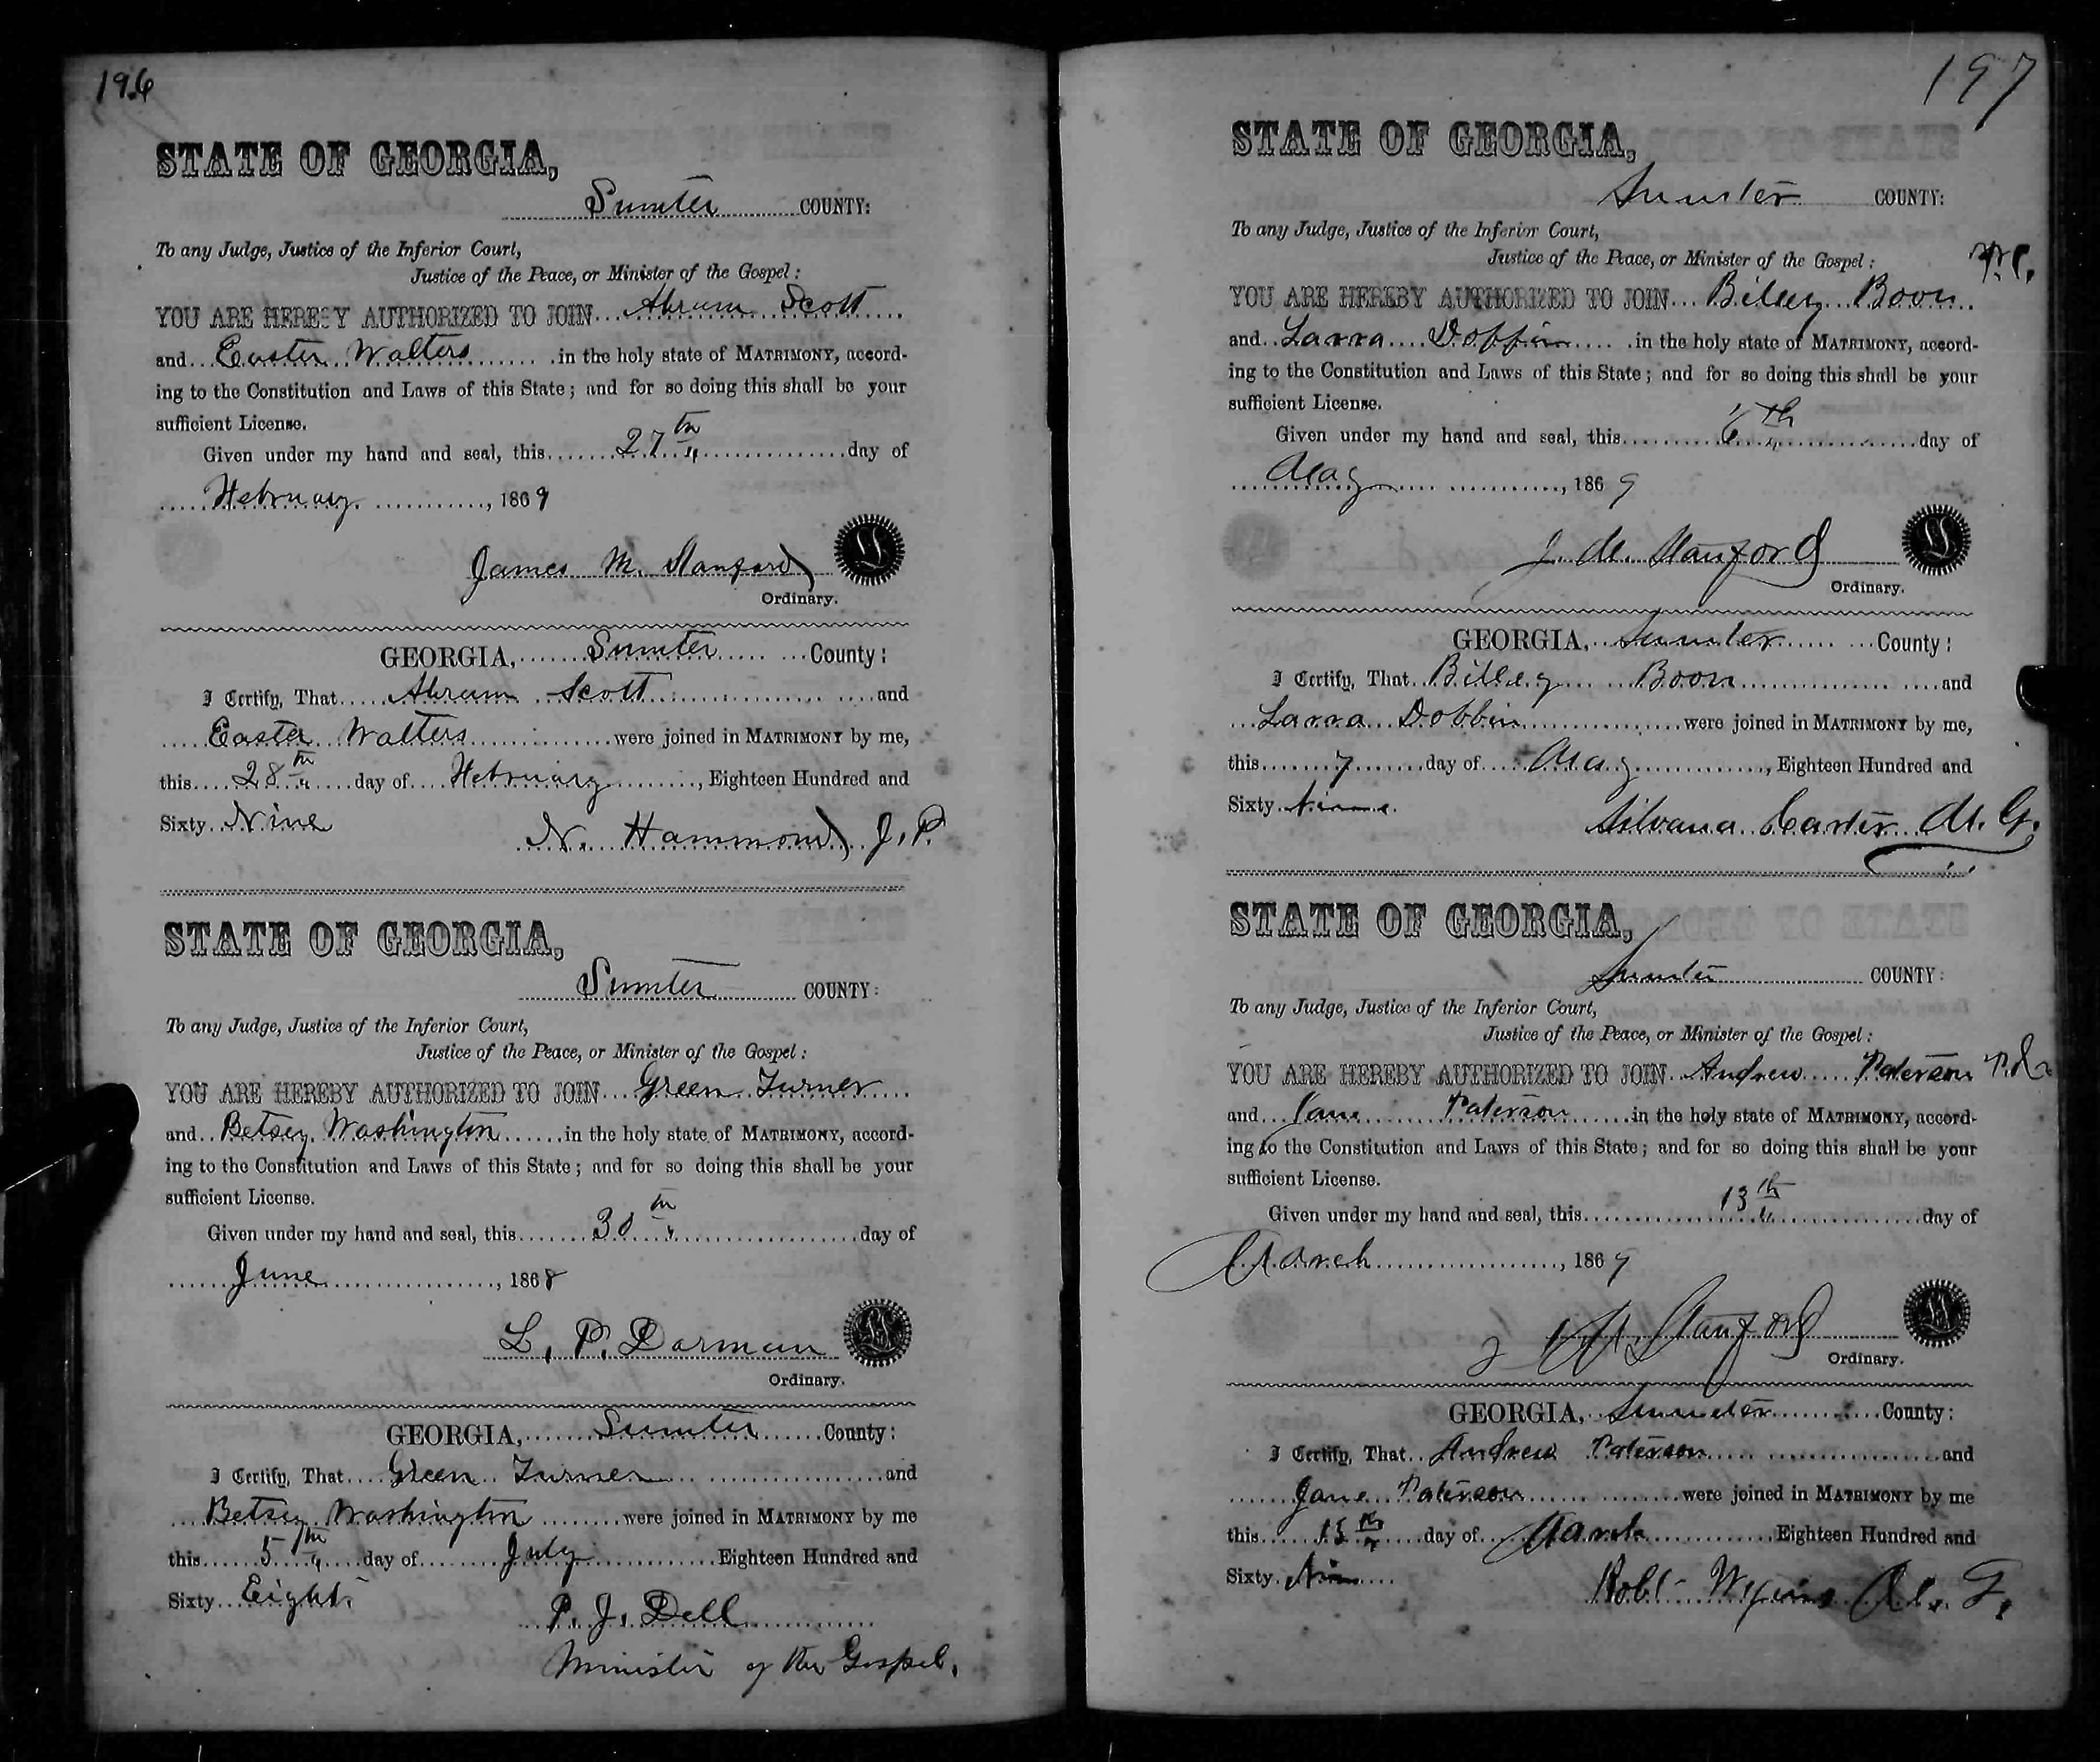 196
STATE OF GEORGIA,
Sumter COUNTY:
To any Judge, Justice of the Inferior Court,
Justice of the Peace, or Minister of the Gospel:
YOU ARE HEREBY AUTHORIZED TO JOIN Abram Scott
and Easter Walters in the holy state of MATRIMONY, accord-
ing to the Constitution and Laws of this State; and for so doing this shall be your
sufficient License.
Given under my hand and seal, this 27th day of
February, 1869
James M. Stanford
Ordinary.
GEORGIA, Sumter County:
I Certify, That Abram Scott and
Easter Walters were joined in MATRIMONY by me,
this 28th day of February, Eighteen Hundred and
Sixty Nine
N. Hammond J.P.
STATE OF GEORGIA,
Sumter COUNTY:
To any Judge, Justice of the Inferior Court,
Justice of the Peace, or Minister of the Gospel:
YOU ARE HEREBY AUTHORIZED TO JOIN Green Turner
and Betsey Washington in the holy state of MATRIMONY, accord-
ing to the Constitution and Laws of this State; and for so doing this shall be your
sufficient License.
Given under my hand and seal, this 30th day of
June, 1868
L. P. Dorman
Ordinary.
GEORGIA, Sumter County:
I Certify, That Green Turner and
Betsey Washington were joined in MATRIMONY by me
this 5th day of July Eighteen Hundred and
Sixty Eight
P. J. Dell
Minister of the Gospel.
197
STATE OF GEORGIA,
Sumter COUNTY:
To any Judge, Justice of the Inferior Court,
Justice of the Peace, or Minister of the Gospel:
YOU ARE HEREBY AUTHORIZED TO JOIN Billey Boon
and Larra Dobbin in the holy state of MATRIMONY, accord-
ing to the Constitution and Laws of this State; and for so doing this shall be your
sufficient License.
Given under my hand and seal, this 6th day of
May, 1869
J. M. Stanford
Ordinary.
GEORGIA, Sumter County:
I Certify, That Billey Boon and
Larra Dobbin were joined in MATRIMONY by me,
this 7 day of May, Eighteen Hundred and
Sixty Nine.
Silvana Carter M. G.
STATE OF GEORGIA,
Sumter COUNTY:
To any Judge, Justice of the Inferior Court,
Justice of the Peace, or Minister of the Gospel:
YOU ARE HEREBY AUTHORIZED TO JOIN Andrew Paterson
and Jane Paterson in the holy state of MATRIMONY, accord-
ing to the Constitution and Laws of this State; and for so doing this shall be your
sufficient License.
Given under my hand and seal, this 13th day of
March, 1869
J M Stanford
Ordinary.
GEORGIA, Sumter County:
I Certify, That Andrew Paterson and
Jane Paterson were joined in MATRIMONY by me
this 15th day of March Eighteen Hundred and
Sixty Nine
Robt